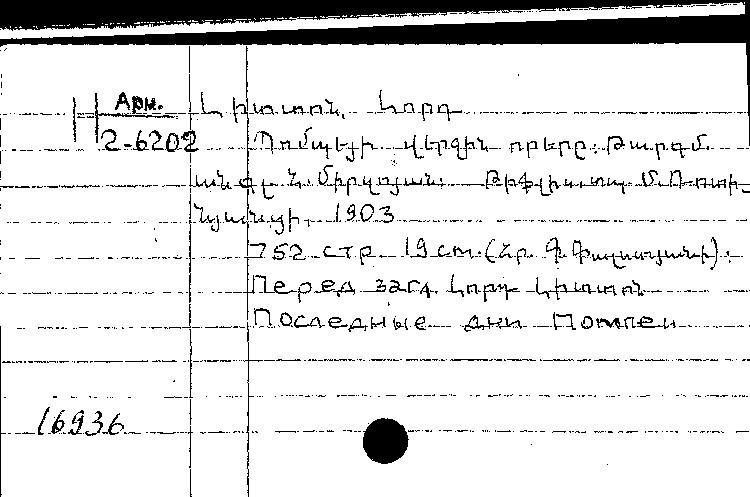 Арм. Լիտտոն, Լորդ
2-6202 Պոմպէյի վերջին օրերը: Թարգմ.
անգլ. Ն. Միրզոյան: Թիֆլիս, տպ. Մ. Ռոտի-
նյանցի, 1903
752 стр. 19 cm. (Հր. Գ. Փալստյանի).
Перед загл. Լորդ Լիտտոն
Последные дни Помпеи
16936